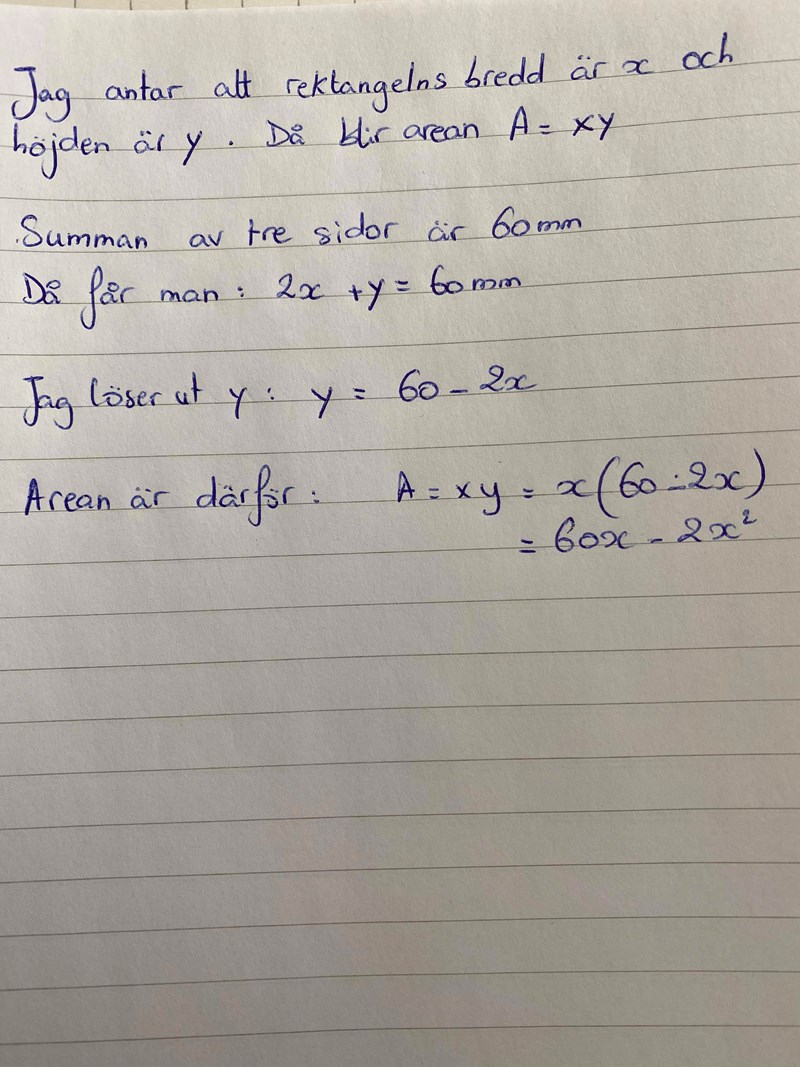 Jag antar att rektangelns bredd är x och
höjden är y. Då blir arean A = xy
Summan av tre sidor är 60mm
Då får man: 2x + y = 60mm
Jag löser ut y: y = 60 - 2x
Arean är därför: A = xy = x(60-2x)
= 60x - 2x²